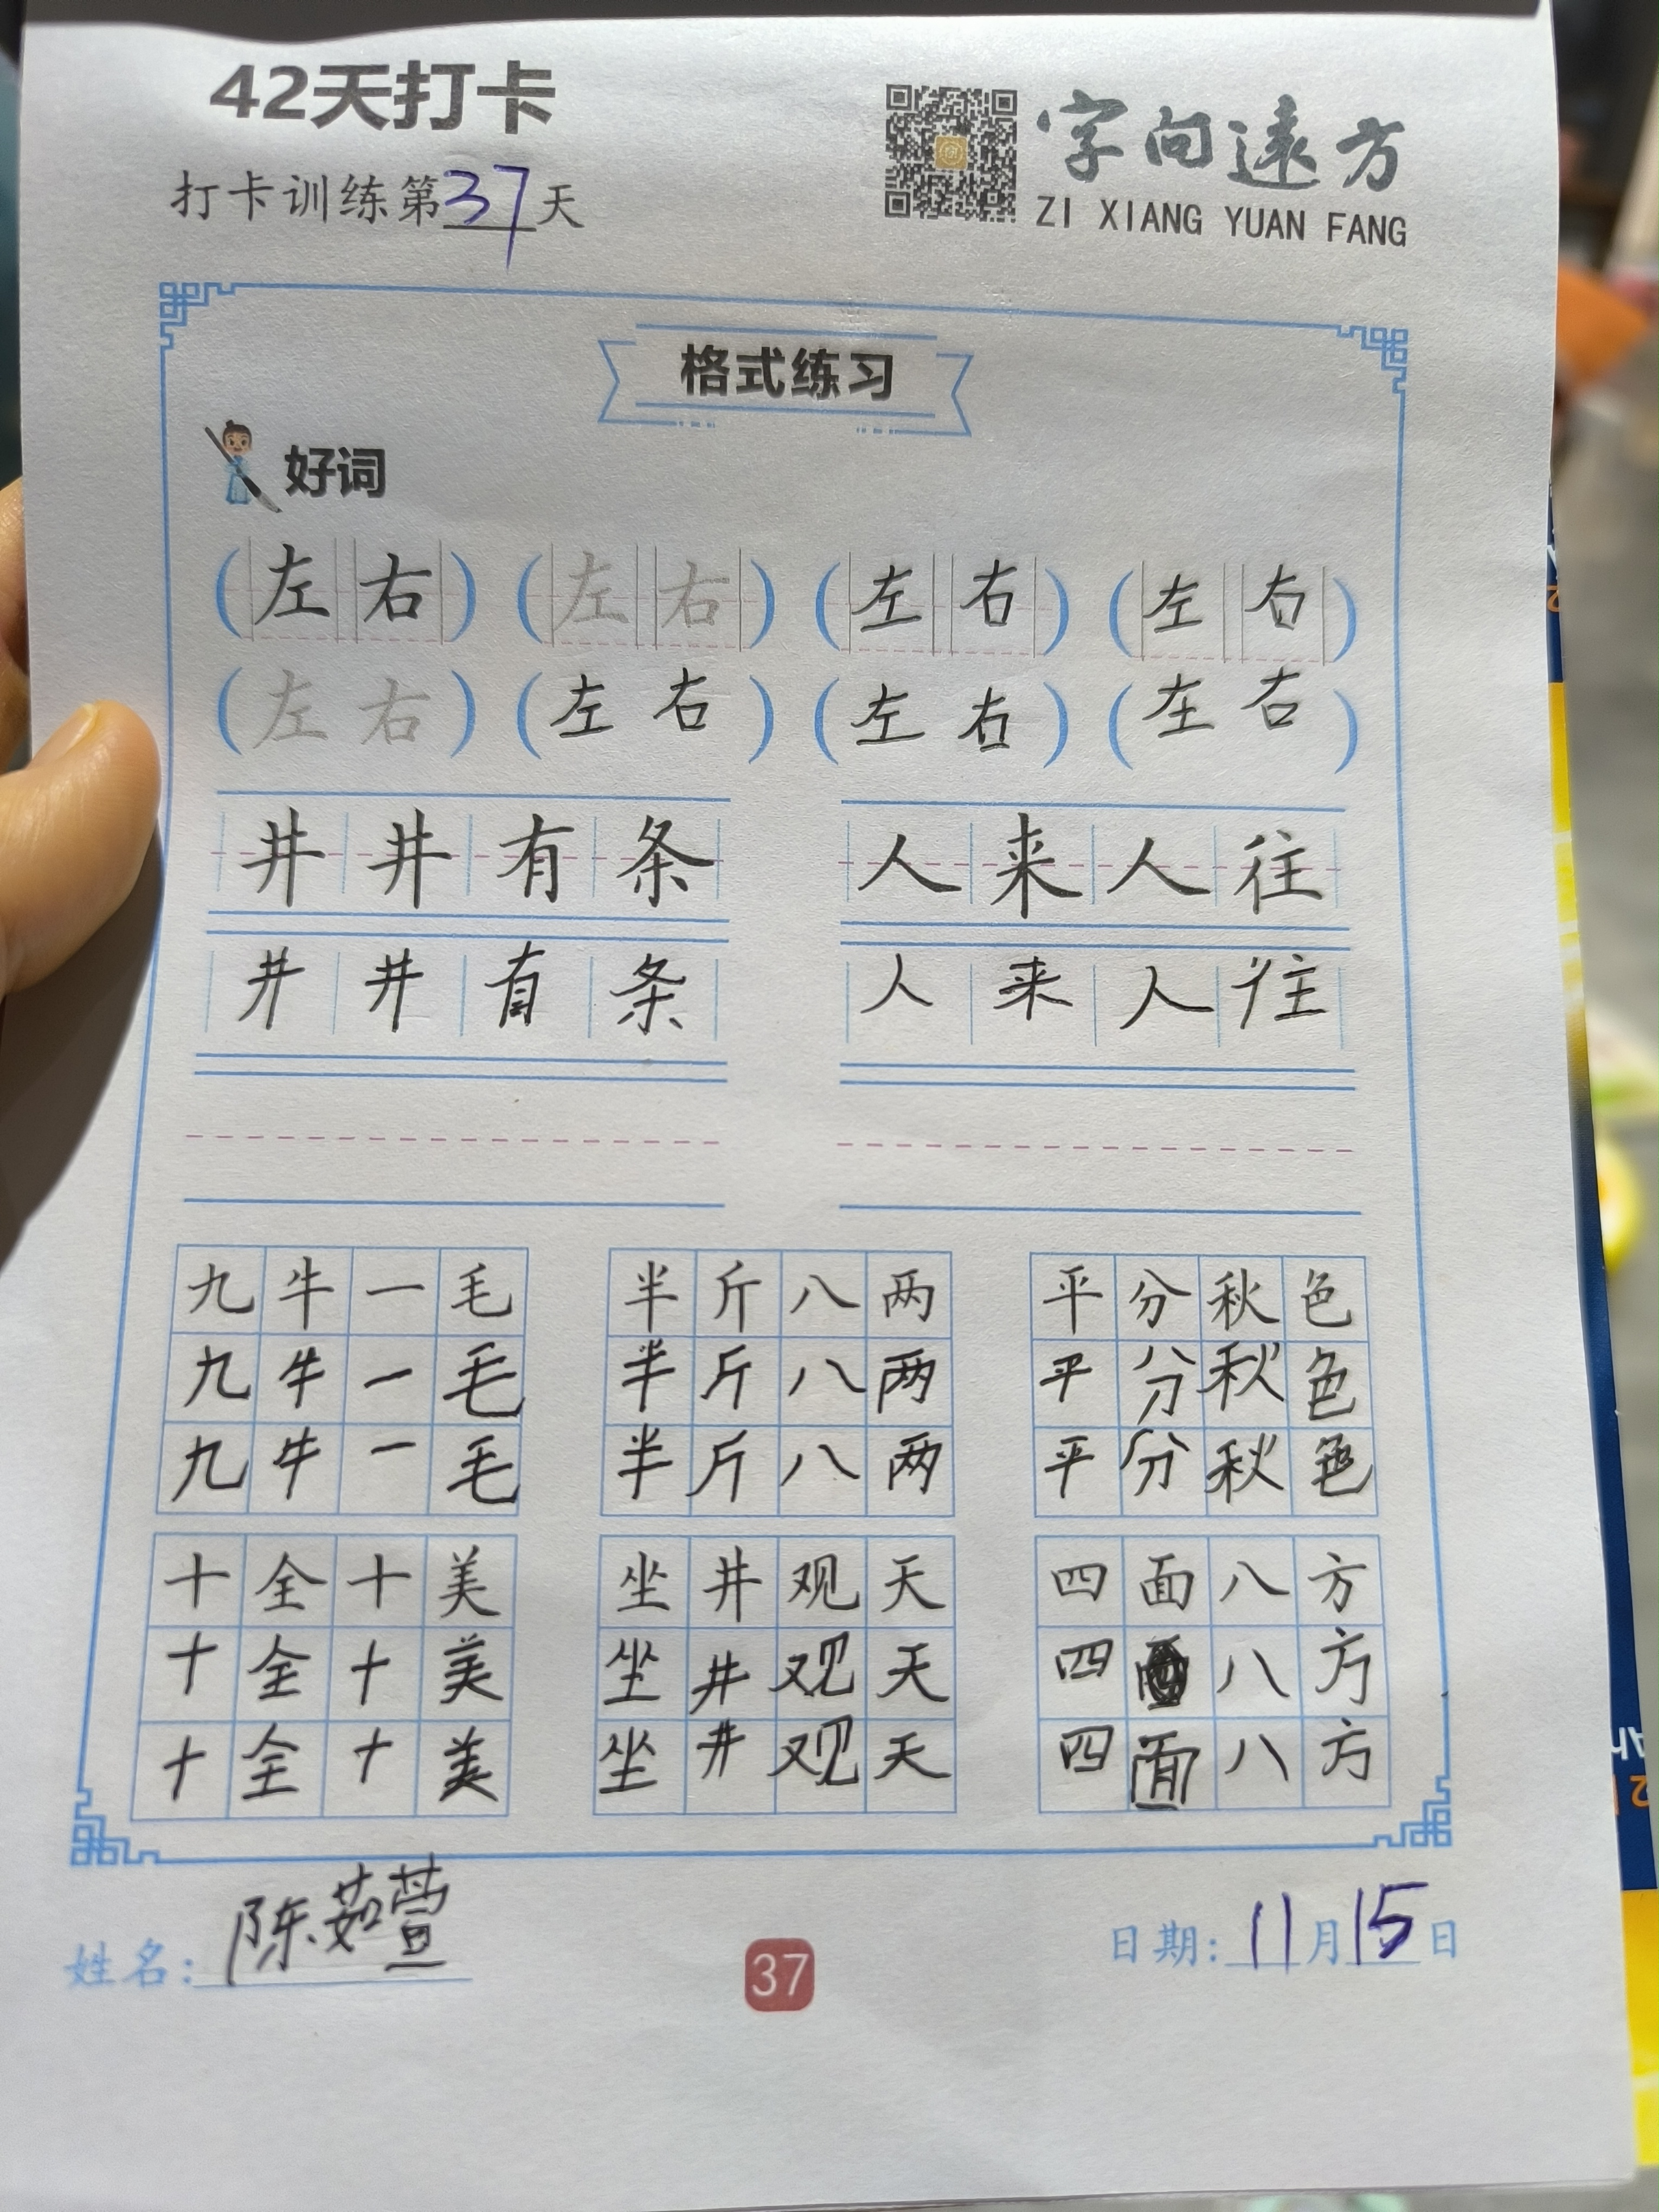 42天打卡
字向远方
打卡训练第37天
ZI XIANG YUAN FANG
格式练习
好词
(左右) (左右) (左右) (左右)
(左右) (左右) (左右) (左右)
井井有条 人来人往
井井有条 人来人往
九牛一毛 半斤八两 平分秋色
九牛一毛 半斤八两 平分秋色
九牛一毛 半斤八两 平分秋色
十全十美 坐井观天 四面八方
十全十美 坐井观天 四面八方
十全十美 坐井观天 四面八方
姓名:陈茹萱 日期:11月15日
37